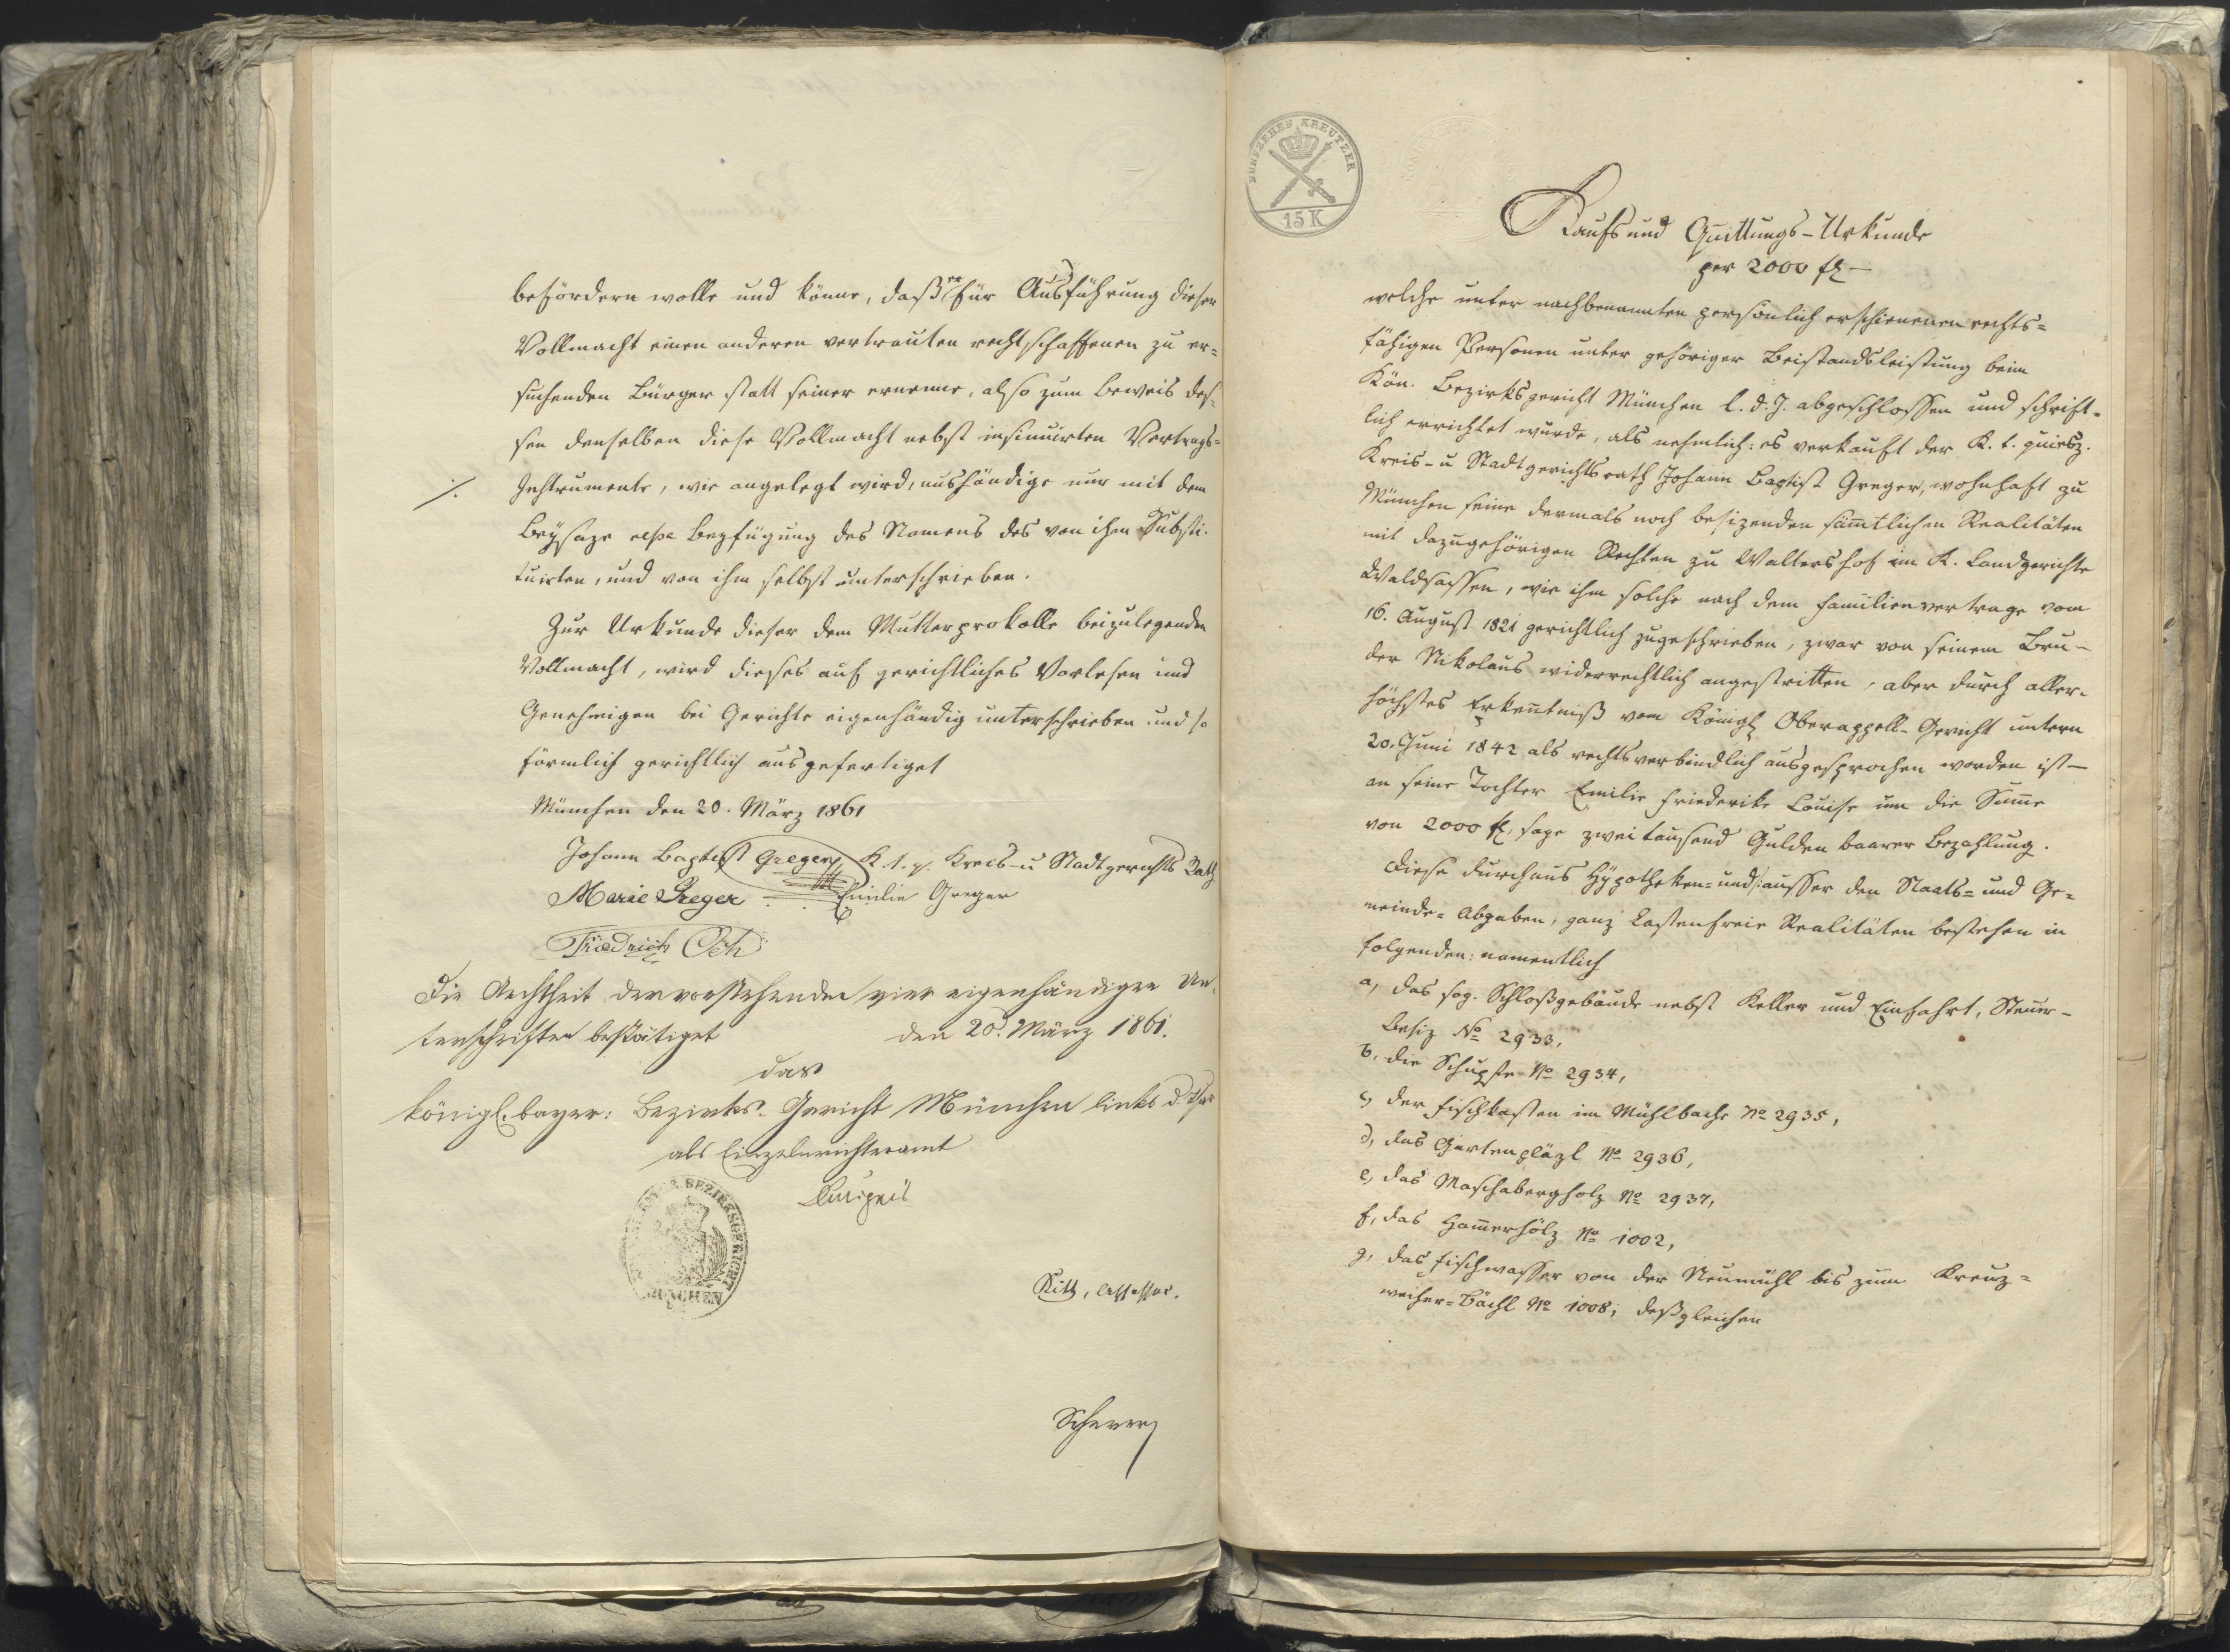 befördern wolle und könne, daß er für Ausführung dieser
Vollmacht einen anderen vertrauten rechtschaffenen zu er=
suchenden Bürger statt seiner ernenne, also zum Beweis des=
sen denselben diese Vollmacht nebst insinuirten Vertrags=
Instrumente, wie angelegt wird, aushändige nur mit dem
Beysaze resp. Beyfügung des Namens des von ihm Substi=
tuirten, und von ihm selbst unterschrieben.
Zur Urkunde dieser dem Mutterprokolle beizulegenden
Vollmacht, wird dieses auf gerichtliches Vorlesen und
Genehmigen bei Gerichte eigenhändig unterschrieben und so
förmlich gerichtlich ausgefertiget
München den 20. März 1861
Johann Baptist Greger K. b. q. Kreis- u Stadtgerichts Rath
Marie Greger Emilie Greger
Friedrich
Die Aechtheit der vorstehenden vier eigenhändigen Un=
terschriften bestätiget den 20. März 1861.
das
königl. bayer: Bezirks-Gericht München links d. Isar
als Einzelnrichteramt
BEZIRKSGERICHT
MÜNCHEN
Assessor.
FUNFZEHEN KREUTZER
15 K
Kaufs und Quittungs-Urkunde
per 2000 fl –
welche unter nachbenannten persönlich erschienenen rechts=
fähigen Personen unter gehöriger Beistandsleistung beim
Kön. Bezirksgericht München l. d. J. abgeschlossen und schrift=
lich errichtet wurde, als nehmlich: es verkauft der K. b. quiesz.
Kreis- u Stadtgerichtsrath Johann Baptist Greger, wohnhaft zu
München seine dermals noch besizenden sämtlichen Realitäten
mit dazugehörigen Rechten zu Waltershof im K. Landgerichte
Waldsassen, wie ihm solche nach dem Familienvertrage vom
16. August 1821 gerichtlich zugeschrieben, zwar von seinem Bru-
der Nikolaus widerrechtlich angestritten, aber durch aller=
höchstes Erkentniß vom Königl Oberappell-Gericht untern
20. Juni 1842 als rechtsverbindlich ausgesprochen worden ist –
an seine Tochter Emilie Friederike Louise um die Sume
von 2000 fl, sage zwei tausend Gulden baarer Bezahlung.
Diese durchaus Hypotheken- und ausser den Staats- und Ge=
meinde- Abgaben, ganz Lastenfreie Realitäten bestehen in
folgenden: namentlich
a, das sog. Schloßgebäude nebst Keller und Einfahrt, Steuer-
Besiz No 2933,
b, die Schupfe No 2934,
c, der Fischkasten im Mühlbache No 2935,
d, das Gartenpläzl No 2936,
e, das Maschabergholz No 2937,
f, das Hamerholz No 1002,
g, das Fischwasser von der Neumühl bis zum Kreuz=
weiher-Bächl No 1008; deßgleichen